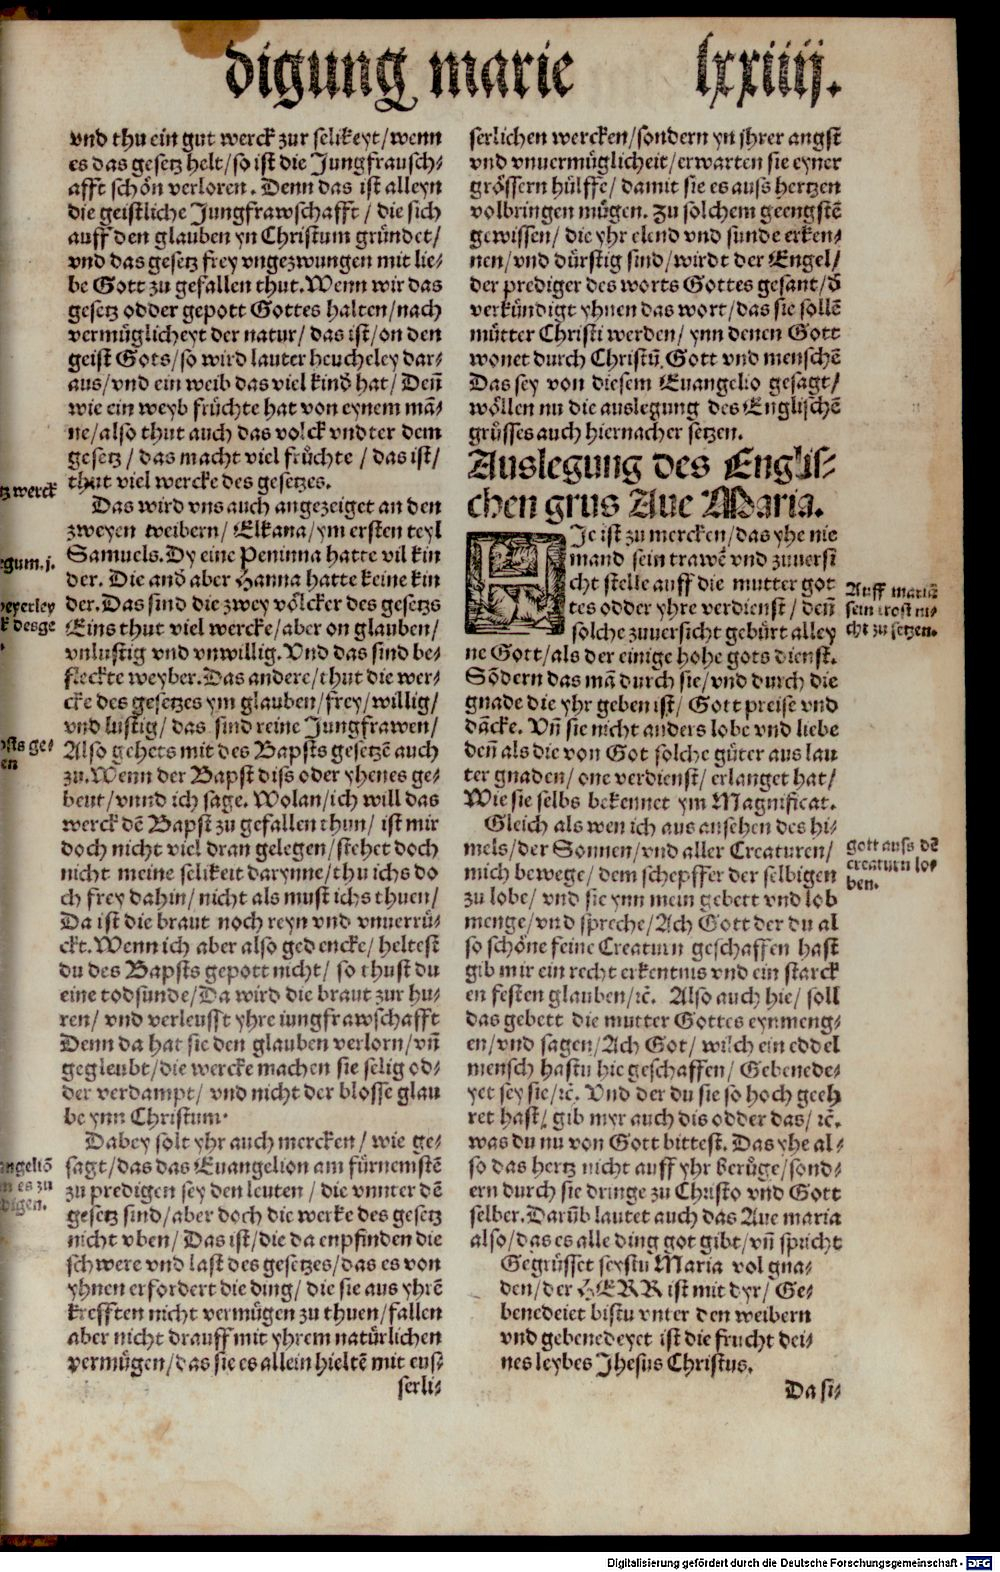 digung marie lxxiiij.
vnd thu ein gut werck zur selikeyt/wenn
es das gesetz helt/so ist die Jungfrausch⸗
afft schön verloren. Denn das ist alleyn
die geistliche Jungfrawschafft/ die sich
auff den glauben yn Christum gründet/
vnd das gesetz frey vngezwungen mit lie⸗
be Gott zu gefallen thut. Wenn wir das
gesetz odder gepott Gottes halten/nach
vermüglicheyt der natur/ das ist/on den
geist Gots/so wird lauter heucheley dar⸗
aus/vnd ein weib das viel kind hat/ Deñ
wie ein weyb früchte hat von eynem mã⸗
ne/also thut auch das volck vndter dem
gesetz/ das macht viel früchte / das ist/
thut viel wercke des gesetzes.
Das wird vns auch angezeiget an den
zweyen weibern/ Elkana/ym ersten teyl
Samuels. Dy eine Peninna hatte vil kin
der. Die and aber Hanna hatte keine kin
der. Das sind die zwey völcker des gesetzs
Eins thut viel wercke/aber on glauben/
vnlustig vnd vnwillig. Vnd das sind be⸗
fleckte weyber. Das andere/thut die wer⸗
cke des gesetzes ym glauben/frey/willig/
vnd lustig/ das sind reine Jungfrawen/
Also gehets mit des Bapsts gesetzẽ auch
zu. Wenn der Bapst diss oder yhenes ge⸗
beut/vnnd ich sage. Wolan/ich will das
werck dẽ Bapst zu gefallen thun/ ist mir
doch nicht viel dran gelegen/stehet doch
nicht meine selikeit darynne/thu ichs do
ch frey dahin/nicht als must ichs thuen/
Da ist die braut noch reyn vnd vnuerrü⸗
ckt. Wenn ich aber also gedencke/ heltest
du des Bapsts gepott nicht/ so thust du
eine todsunde/Da wird die braut zur hu⸗
ren/ vnd verleusst yhre iungfrawschafft
Denn da hat sie den glauben verlorn/vñ
gegleubt/die wercke machen sie selig od⸗
der verdampt/ vnd nicht der blosse glau
be ynn Christum.
Dabey solt yhr auch mercken/ wie ge⸗
sagt/das das Euangelion am fürnemstẽ
zu predigen sey den leuten/ die vnnter dẽ
gesetz sind/aber doch die werke des gesetz
nicht vben/ Das ist/die da enpfinden die
schwere vnd last des gesetzes/das es von
yhnen erfordert die ding/ die sie aus yhrẽ
krefften nicht vermügen zu thuen/fallen
aber nicht drauff mit yhrem natürlichen
vermügen/das sie es allein hieltẽ mit eus⸗
serli⸗
tz werck
egum.j.
weyerley
k desge
psts ge⸗
en
angeliõ
n es zu
digen.
serlichen wercken/sondern yn jhrer angst
vnd vnuermüglicheit/erwarten sie eyner
grössern hülffe/ damit sie es auss hertzen
volbringen mügen. Zu solchem geengstẽ
gewissen/ die yhr elend vnd sunde erken⸗
nen/vnd dürstig sind/wirdt der Engel/
der prediger des worts Gottes gesant/d̃
verkündigt yhnen das wort/das sie sollẽ
mütter Christi werden/ ynn denen Gott
wonet durch Christũ, Gott vnd menschẽ
Das sey von diesem Euangelio gesagt/
wöllen nu die auslegung des Englischẽ
grüsses auch hiernacher setzen.
Auslegung des Englis⸗
chen grus Aue Maria.
HJe ist zu mercken/das yhe nie
mand sein trawẽ vnd zuuersi
cht stelle auff die mutter got
tes odder yhre verdienst/ deñ
solche zuuersicht gebürt alley
ne Gott/als der einige hohe gots dienst.
Sõdern das mã durch sie/vnd durch die
gnade die yhr geben ist/ Gott preise vnd
dãcke. Vñ sie nicht anders lobe vnd liebe
deñ als die von Got solche güter aus lau
ter gnaden/ one verdienst/ erlanget hat/
Wie sie selbs bekennet ym Magnificat.
Gleich als wen ich aus ansehen des hi⸗
mels/der Sonnen/vnd aller Creaturen/
mich bewege/ dem schepffer der selbigen
zu lobe/ vnd sie ynn mein gebett vnd lob
menge/vnd spreche/Ach Gott der du al
so schöne feine Creaturn geschaffen hast
gib mir ein recht erkentnis vnd ein starck
en festen glauben/ꝛc̃. Also auch hie/ soll
das gebett die mutter Gottes eynmeng⸗
en/vnd sagen/Ach Got/ wilch ein eddel
mensch hastu hie geschaffen/ Gebenede⸗
yet sey sie/ꝛc̃. Vnd der du sie so hoch geeh
ret hast/ gib myr auch dis odder das/ꝛc̃.
was du nu von Gott bittest. Das yhe al⸗
so das hertz nicht auff yhr berüge/sond⸗
ern durch sie dringe zu Christo vnd Gott
selber. Darũb lautet auch das Aue maria
also/das es alle ding got gibt/vñ spricht
Gegrüsset seystu Maria vol gna⸗
den/der HERR ist mit dyr/ Ge⸗
benedeiet bistu vnter den weibern
vnd gebenedeyet ist die frucht dei⸗
nes leybes Jhesus Christus.
Da si⸗
Auff mariã
sein trost ni⸗
cht zu setzen.
gott auss dẽ
creaturn lo⸗
ben.
Digitalisierung gefördert durch die Deutsche Forschungsgemeinschaft - DFG